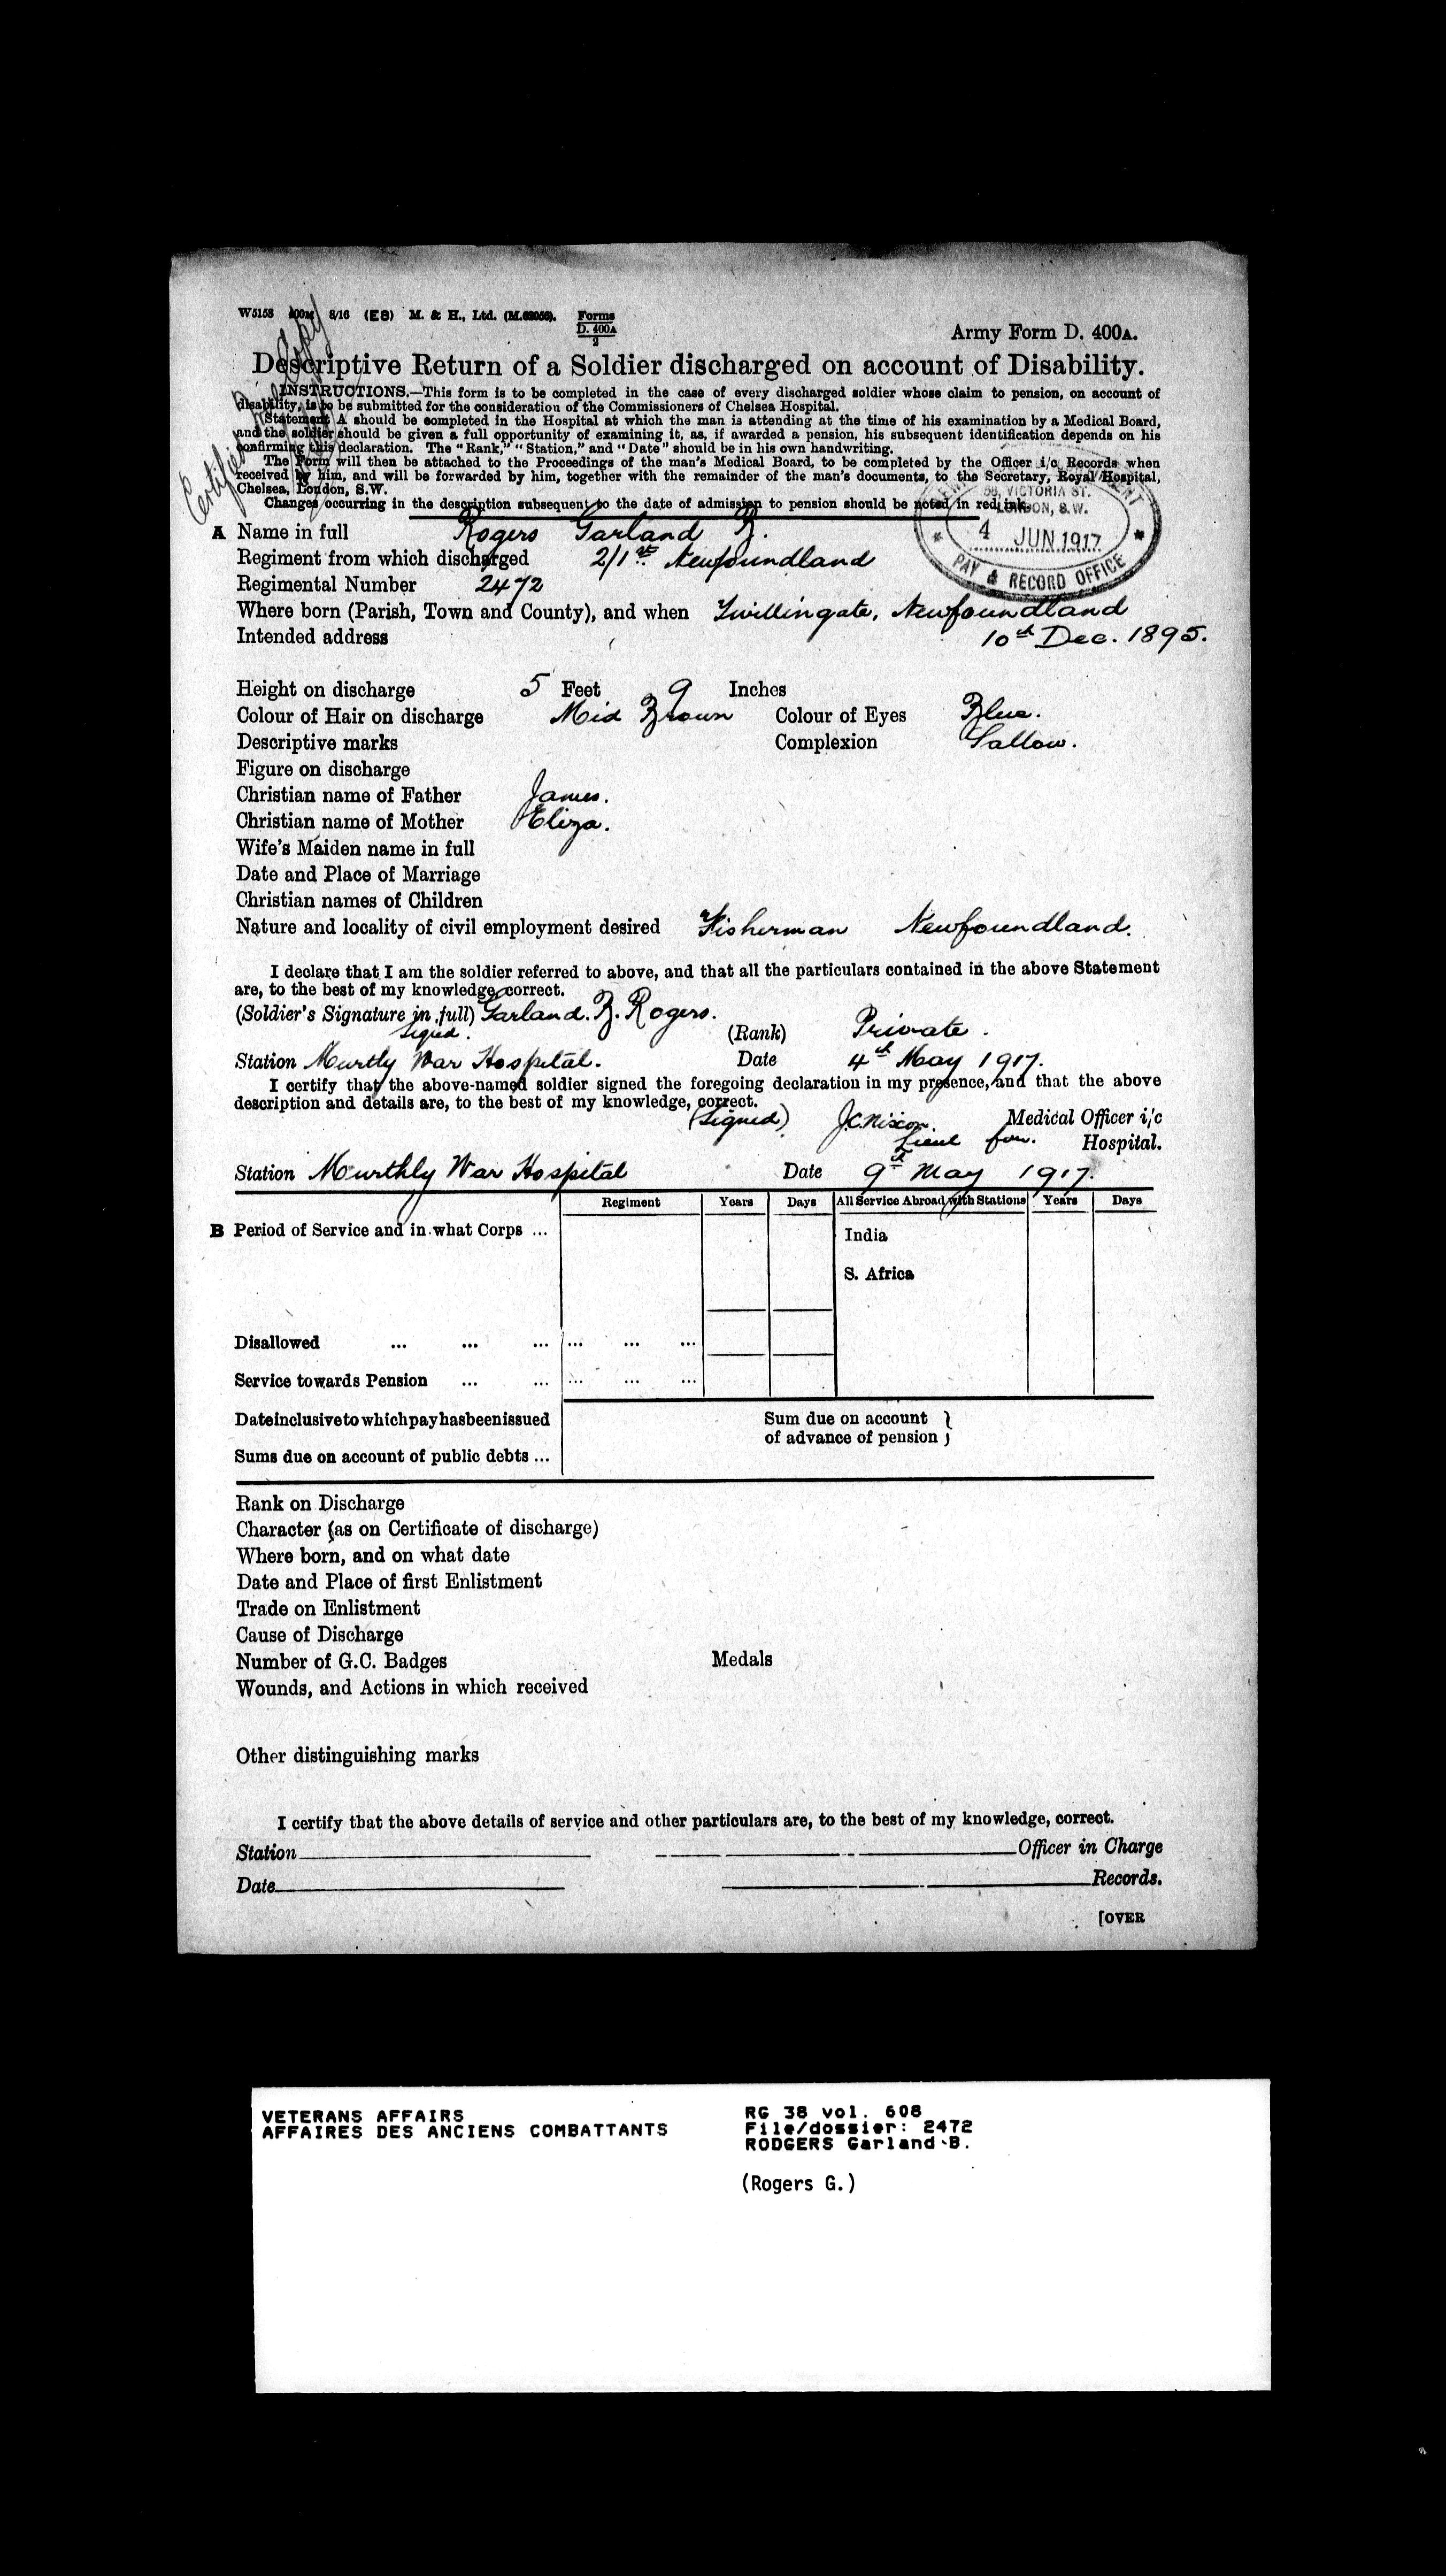 W5158 400M 8/16 (E8) M. & H., Ltd. Forms
D. 400A
2
Army Form D. 400A.
Certified True Copy
Descriptive Return of a Soldier discharged on account of Disability.
INSTRUCTIONS.—This form is to be completed in the case of every discharged soldier whose claim to pension, on account of
disability, is to be submitted for the consideration of the Commissioners of Chelsea Hospital.
Statement A should be completed in the Hospital at which the man is attending at the time of his examination by a Medical Board,
and the soldier should be given a full opportunity of examining it, as, if awarded a pension, his subsequent identification depends on his
confirming this declaration. The "Rank," "Station," and "Date" should be in his own handwriting.
The Form will then be attached to the Proceedings of the man's Medical Board, to be completed by the Officer i/c Records when
received by him, and will be forwarded by him, together with the remainder of the man's documents, to the Secretary, Royal Hospital,
Chelsea, London, S.W.
Changes occurring in the description subsequent to the date of admission to pension should be noted in red ink.
58, VICTORIA ST.
LONDON, S.W.
4 JUN 1917
PAY & RECORD OFFICE
A Name in full Rogers Garland B.
Regiment from which discharged 2/1st Newfoundland
Regimental Number 2472
Where born (Parish, Town and County), and when Twillingate, Newfoundland
Intended address 10th Dec. 1895.
Height on discharge 5 Feet 9 Inches
Colour of Hair on discharge Mid Brown Colour of Eyes Blue.
Descriptive marks Complexion Sallow.
Figure on discharge
Christian name of Father James.
Christian name of Mother Eliza.
Wife's Maiden name in full
Date and Place of Marriage
Christian names of Children
Nature and locality of civil employment desired Fisherman Newfoundland.
I declare that I am the soldier referred to above, and that all the particulars contained in the above Statement
are, to the best of my knowledge, correct.
(Soldier's Signature in full) Garland. B. Rogers.
Signed. (Rank) Private.
Station Murtly War Hospital. Date 4th May 1917.
I certify that the above-named soldier signed the foregoing declaration in my presence, and that the above
description and details are, to the best of my knowledge, correct.
(Signed) J.C. Nixon. Medical Officer i/c
Lieut for. Hospital.
Station Murthly War Hospital Date 9th May 1917.
Regiment Years Days All Service Abroad with Stations Years Days
B Period of Service and in what Corps ... India
S. Africa
Disallowed ... ... ... ... ... ...
Service towards Pension ... ... ... ... ...
Date inclusive to which pay has been issued Sum due on account
of advance of pension
Sums due on account of public debts ...
Rank on Discharge
Character (as on Certificate of discharge)
Where born, and on what date
Date and Place of first Enlistment
Trade on Enlistment
Cause of Discharge
Number of G.C. Badges Medals
Wounds, and Actions in which received
Other distinguishing marks
I certify that the above details of service and other particulars are, to the best of my knowledge, correct.
Station Officer in Charge
Date Records.
[OVER
VETERANS AFFAIRS RG 38 vol. 608
AFFAIRES DES ANCIENS COMBATTANTS File/dossier: 2472
RODGERS Garland B.
(Rogers G.)